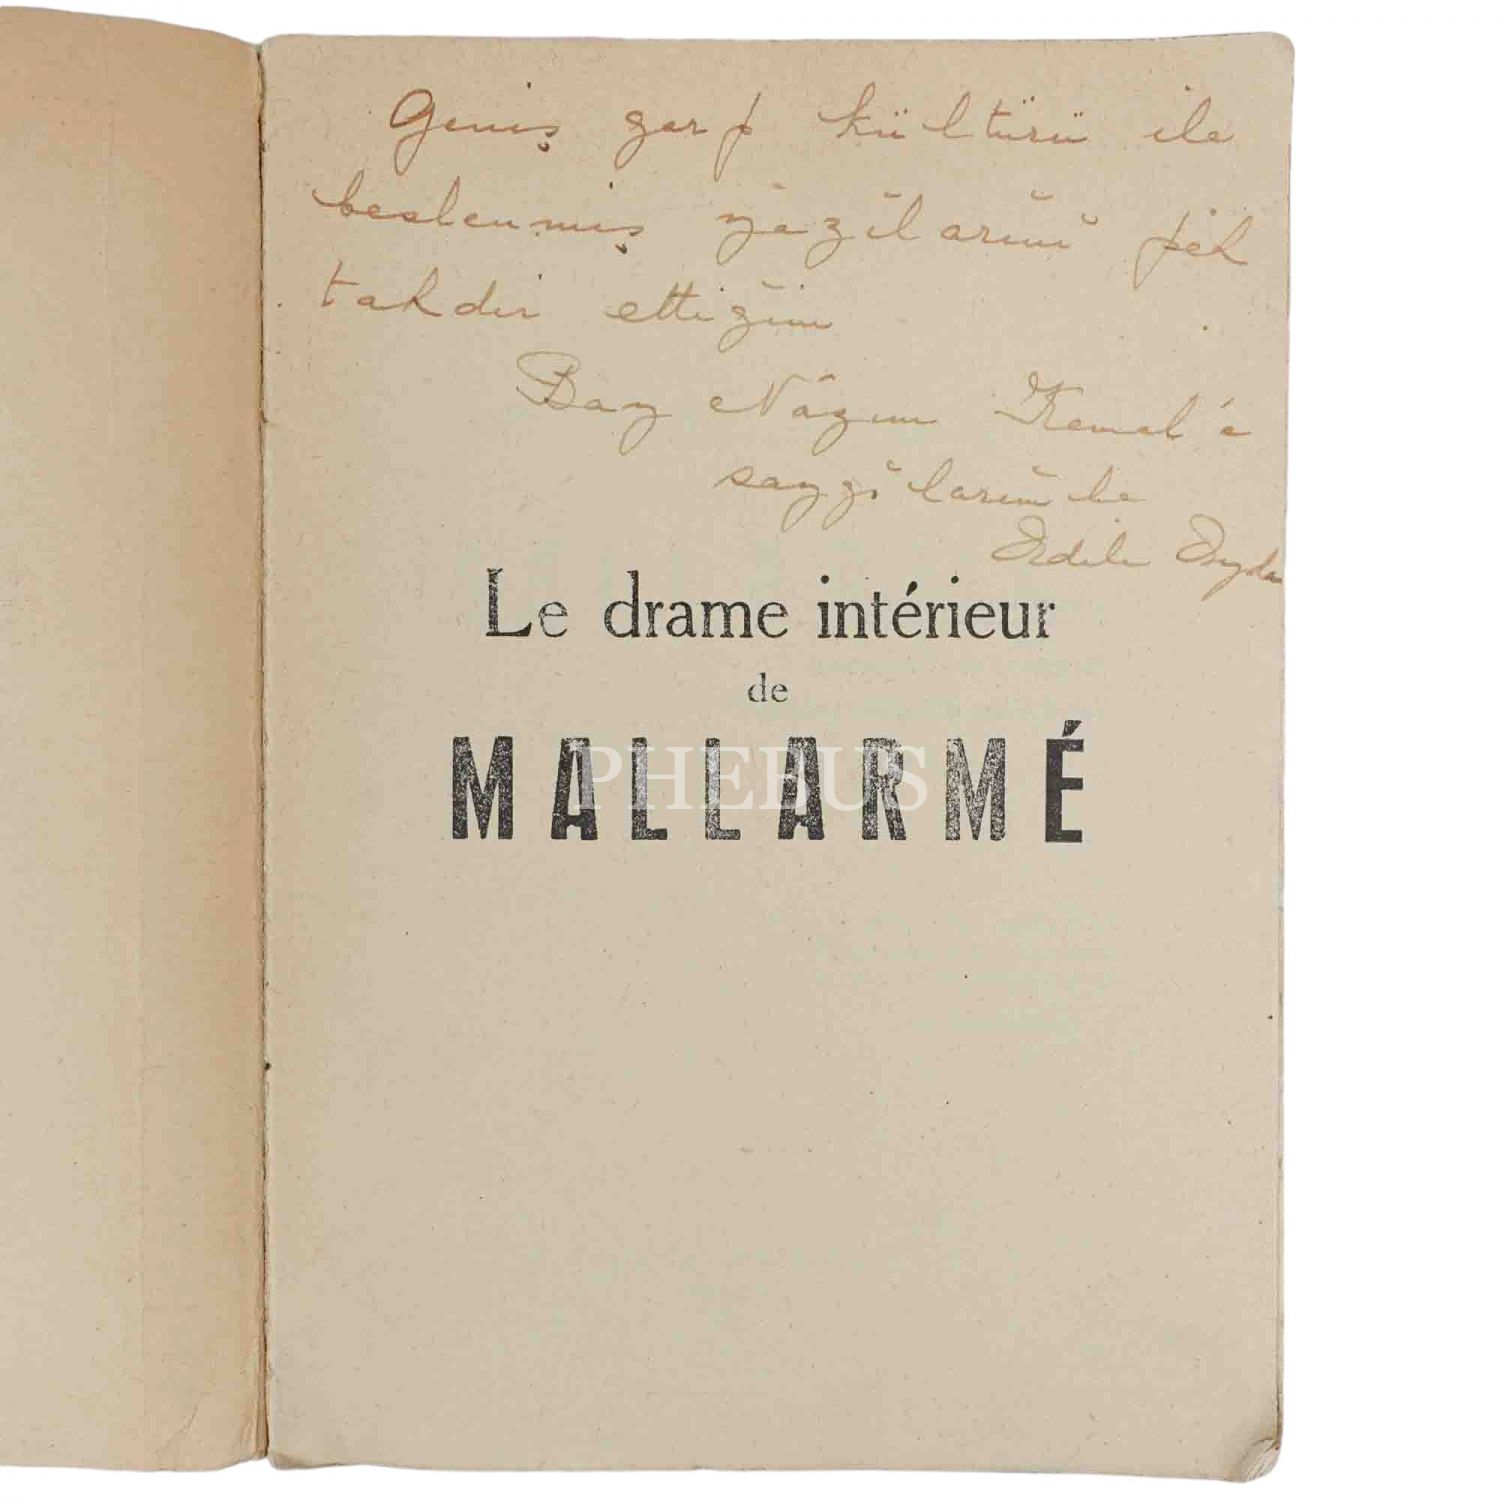 Geniş garp kültürü ile
beslenmiş yăzĭlarĭnĭ pek
takdir ettiğim
Bay Nâzım Kemal'e
saygĭlarĭmla
Adile Ayda
Le drame intérieur
de
MALLARMÉ
PHEBUS